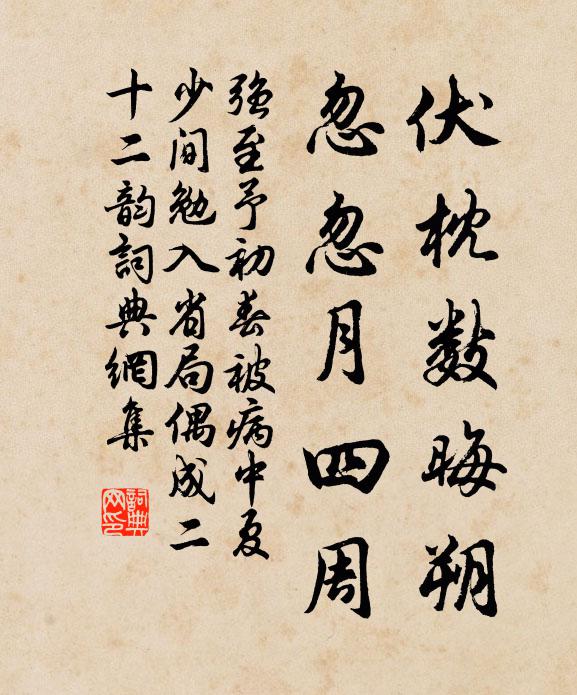 伏枕数晦朔
忽忽月四周
强至予初春被病中夏
少间勉入省局偶成二
十二韵词典網集
詞典
网印